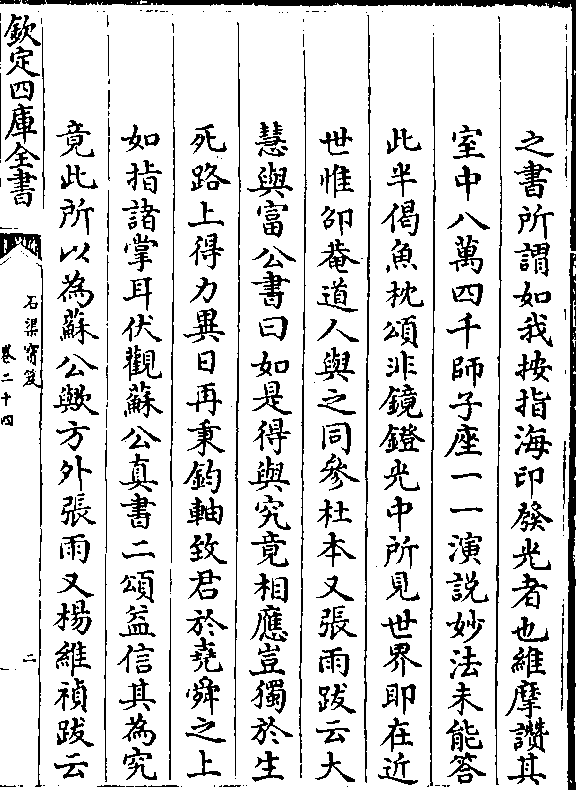 之書所謂如我按指海印發光者也維摩讚其
室中八萬四千師子座一一演說妙法未能答
此半偈魚枕頌非鏡鐙光中所見世界即在近
世惟卬菴道人與之同參杜本又張雨跋云大
慧與富公書曰如是得與究竟相應豈獨於生
死路上得力異日再秉鈞軸致君於堯舜之上
如指諸掌耳伏觀蘇公真書二頌益信其為究
竟此所以為蘇公歟方外張雨又楊維禎跋云
欽定四庫全書
石渠寶笈
卷二十四
二